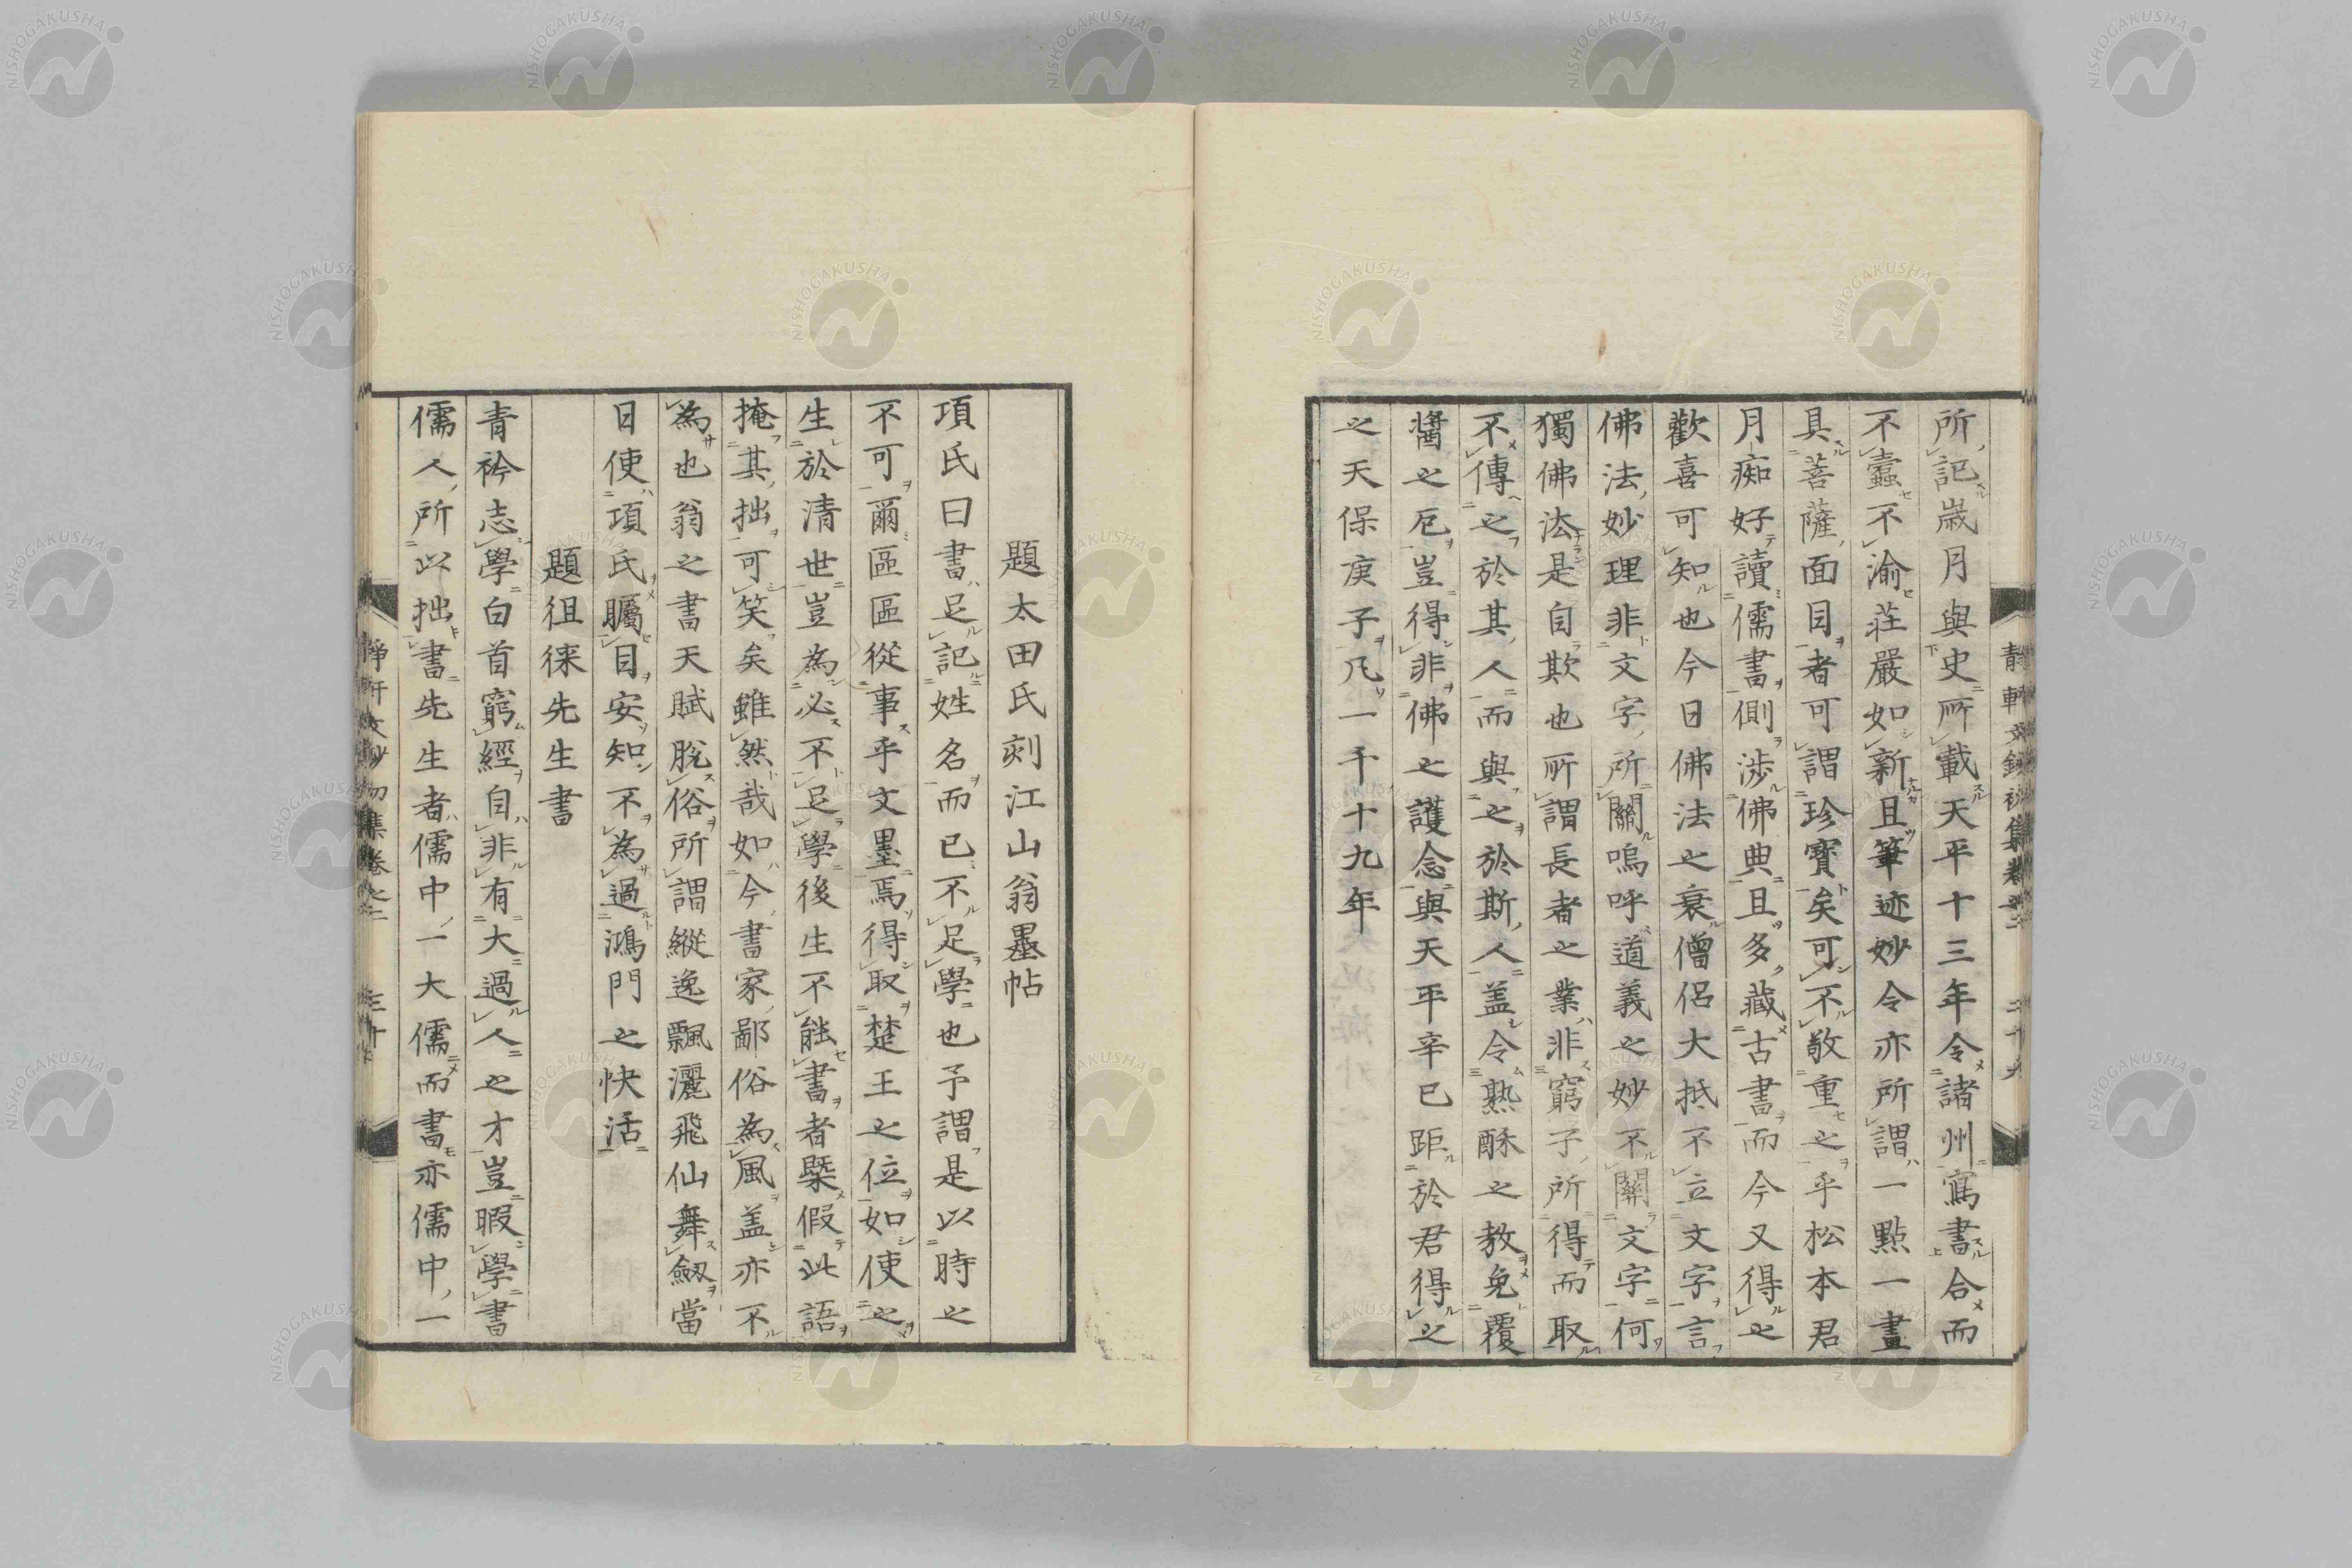 所記歳月與史所載天平十三年令諸州寫書合而
不蠹不渝莊嚴如新且筆迹妙令亦所謂一點一畫
具菩薩面目者可謂珍寶矣可不敬重之乎松本君
月痴好讀儒書側渉佛典且多藏古書而今又得之
歡喜可知也今日佛法之衰僧侶大抵不立文字言
佛法妙理非文字所關嗚呼道義之妙不關文字何
獨佛法是自欺也所謂長者之業非窮子所得而取
不傳之於其人而與之於斯人盖令熟酥之教免覆
醬之厄豈得非佛之護念與天平辛巳距於君得之
之天保庚子凡一千十九年
題太田氏刻江山翁墨帖
項氏曰書足記姓名而已不足學也予謂是以時之
不可爾區區從事乎文墨焉得取楚王之位如使之
生於清世豈為必不足學後生不能書者槩假此語
掩其拙可笑矣雖然哉如今書家鄙俗為風盖亦不
為也翁之書天賦脱俗所謂縱逸飄灑飛仙舞劔當
日使項氏矚目安知不為過鴻門之快活
題徂徠先生書
青衿志學白首窮經自非有大過人之才豈暇學書
儒人所以拙書先生者儒中一大儒而書亦儒中一
NISHOGAKUSHA